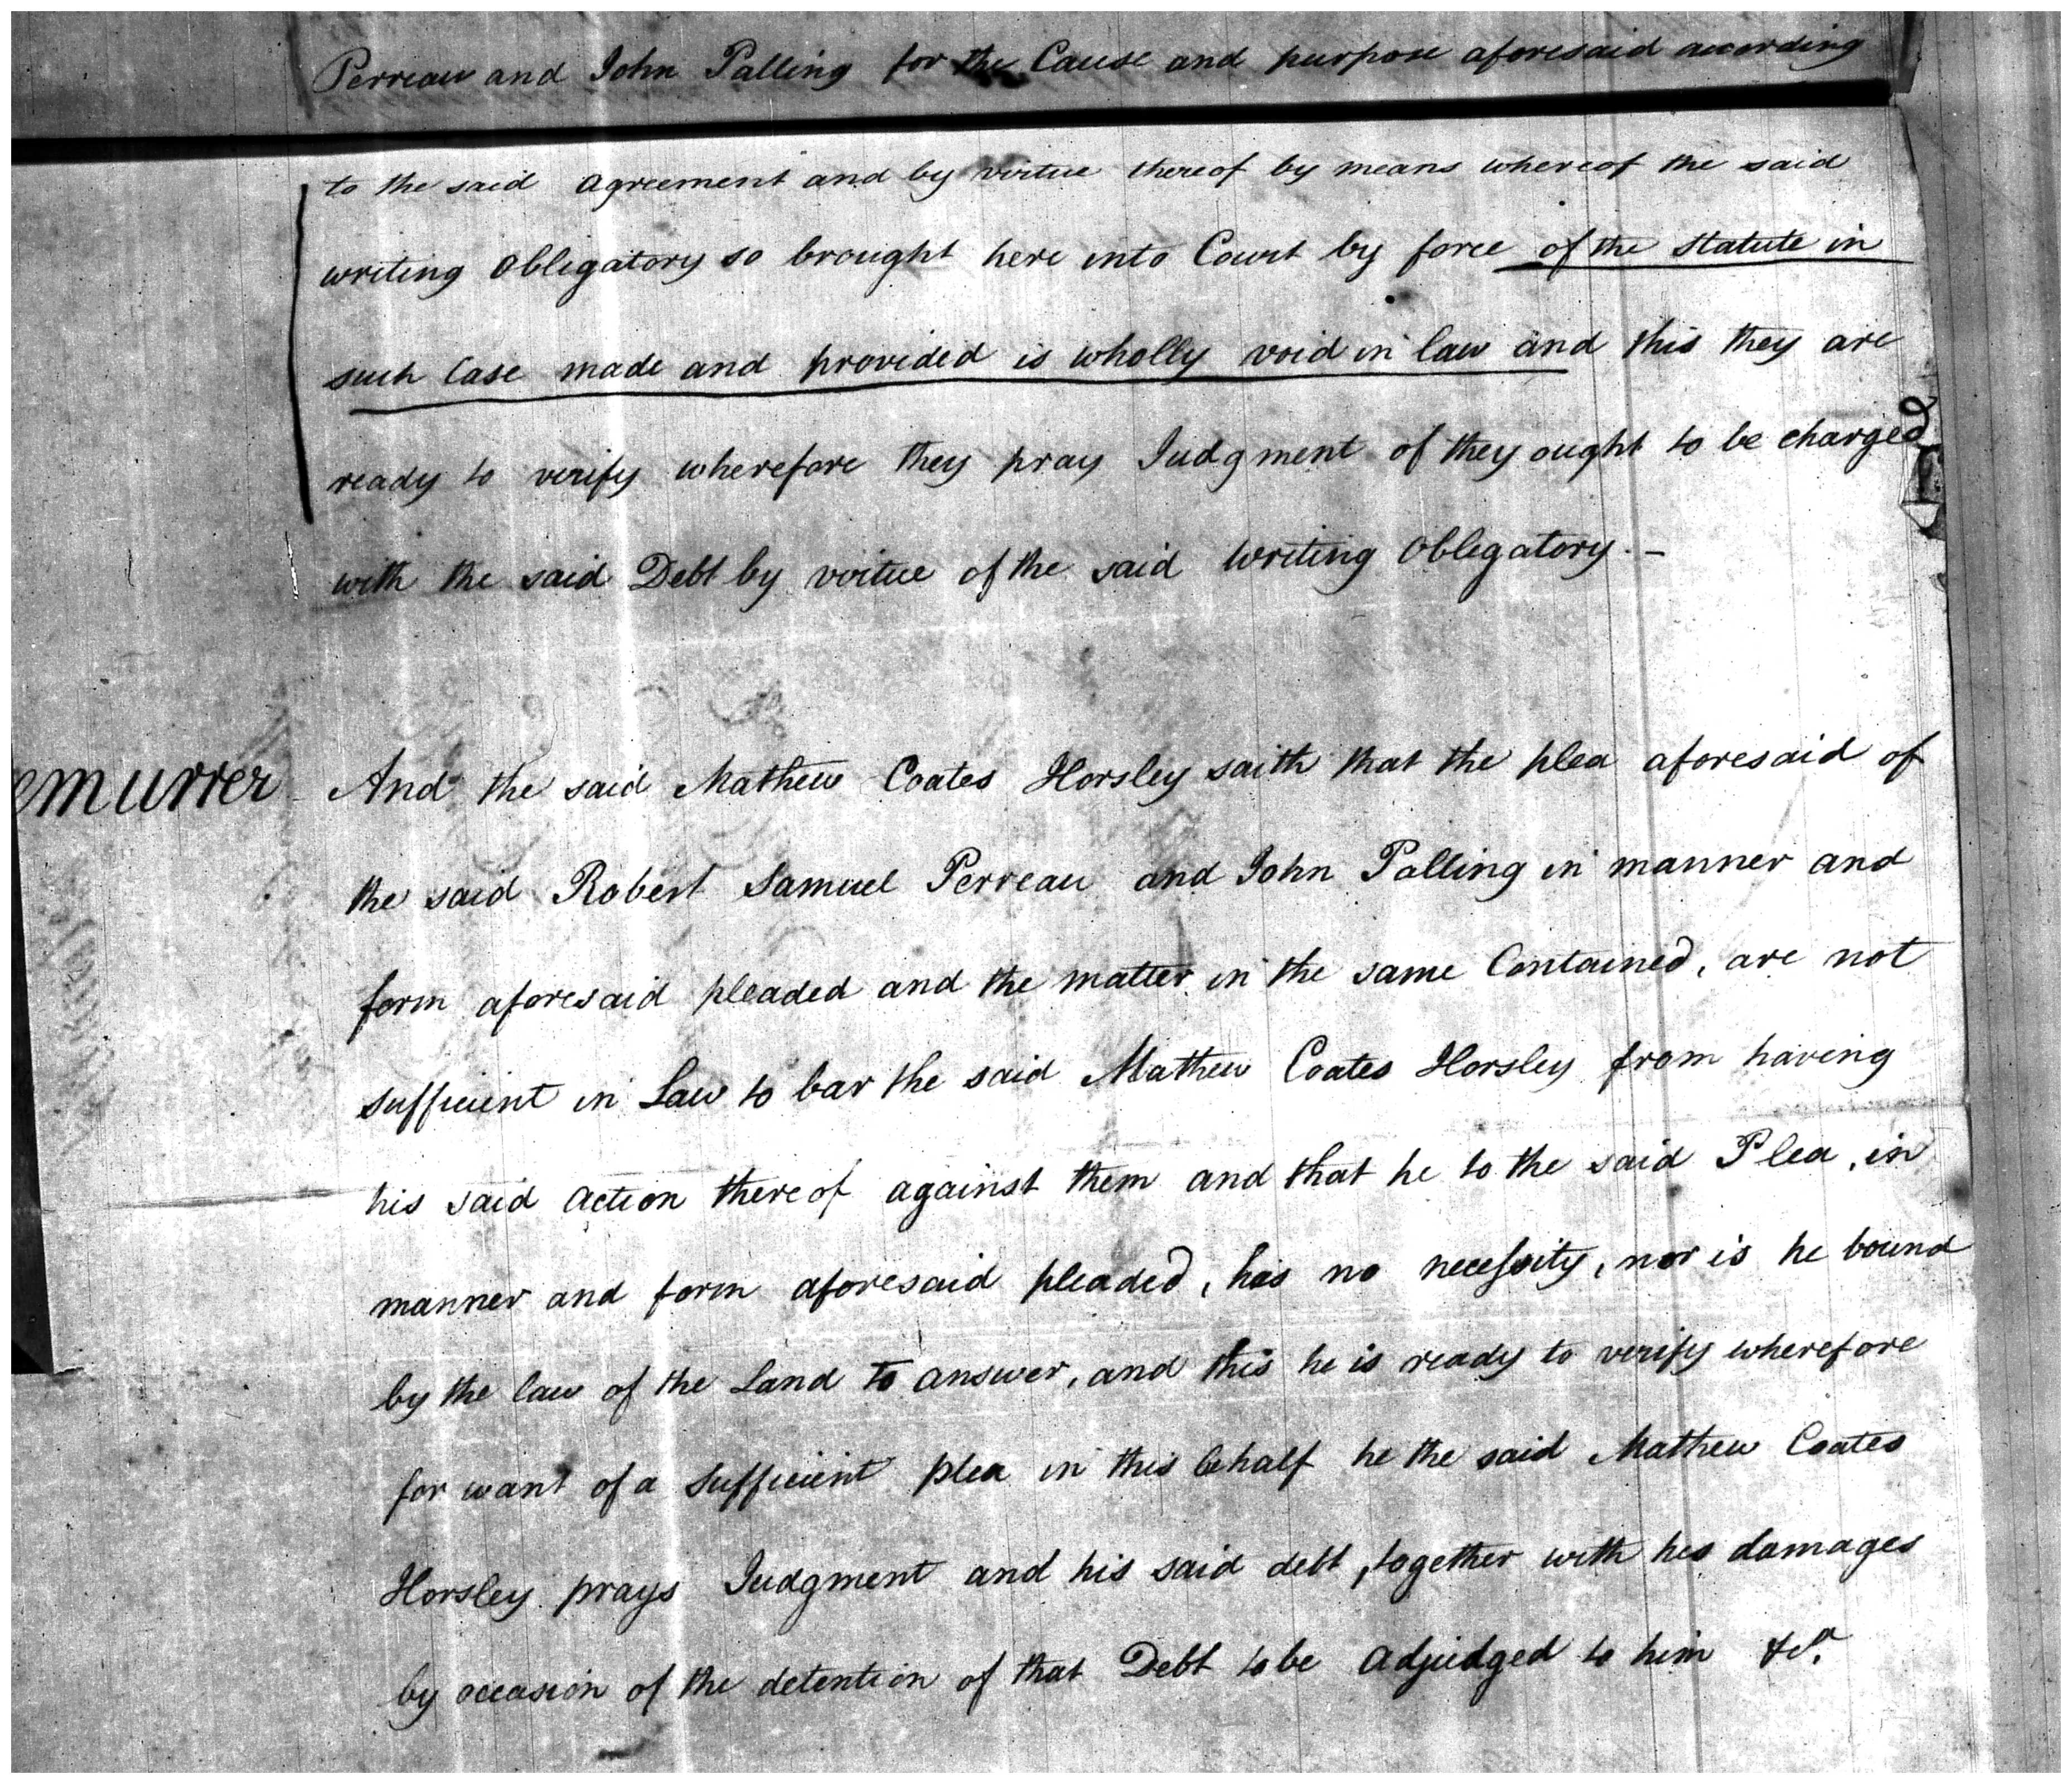 Perreau and John Palling for the Cause and purpose aforesaid according
to the said Agreement and by virtue thereof by means whereof the said
writing Obligatory so brought here into Court by force of the Statute in
such Case made and provided is wholly void in law and this they are
ready to verify wherefore they pray Judgment of they ought to be charged
with the said Debt by virtue of the said Writing Obligatory. –
emurrer And the said Mathew Coates Horsley saith that the plea aforesaid of
the said Robert Samuel Perreau and John Palling in manner and
form aforesaid pleaded and the matter in the same Contained, are not
sufficient in Law to bar the said Mathew Coates Horsley from having
his said action thereof against them and that he to the said Plea, in
manner and form aforesaid pleaded, has no necessity, nor is he bound
by the law of the Land to answer, and this he is ready to verify wherefore
for want of a sufficient plea in this behalf he the said Mathew Coates
Horsley prays Judgment and his said debt, together with his damages
by occasion of the detention of that Debt to be adjudged to him &ca.